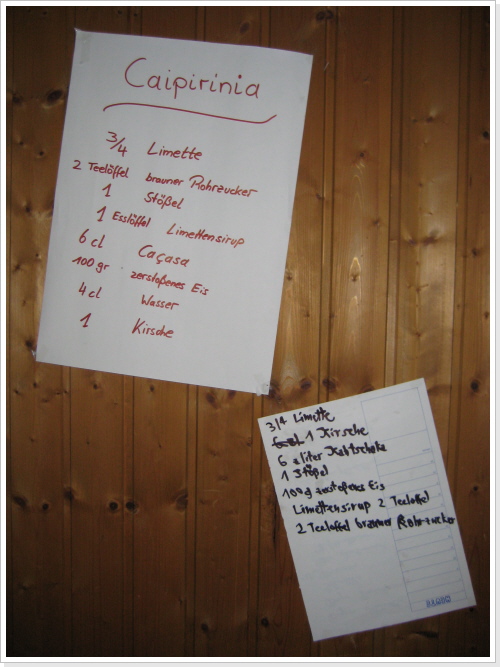 Caipirinia
3/4 Limette
2 Teelöffel brauner Rohrzucker
1 Stößel
1 Esslöffel Limettensirup
6 cl Caçasa
100 gr zerstoßenes Eis
4 cl Wasser
1 Kirsche
3/4 Limette
1 Kirsche
6 liter
1 Stößel
100 g zerstoßenes Eis
Limettensirup 2 Teeloffel
2 Teeloffel brauner Rohrzucker